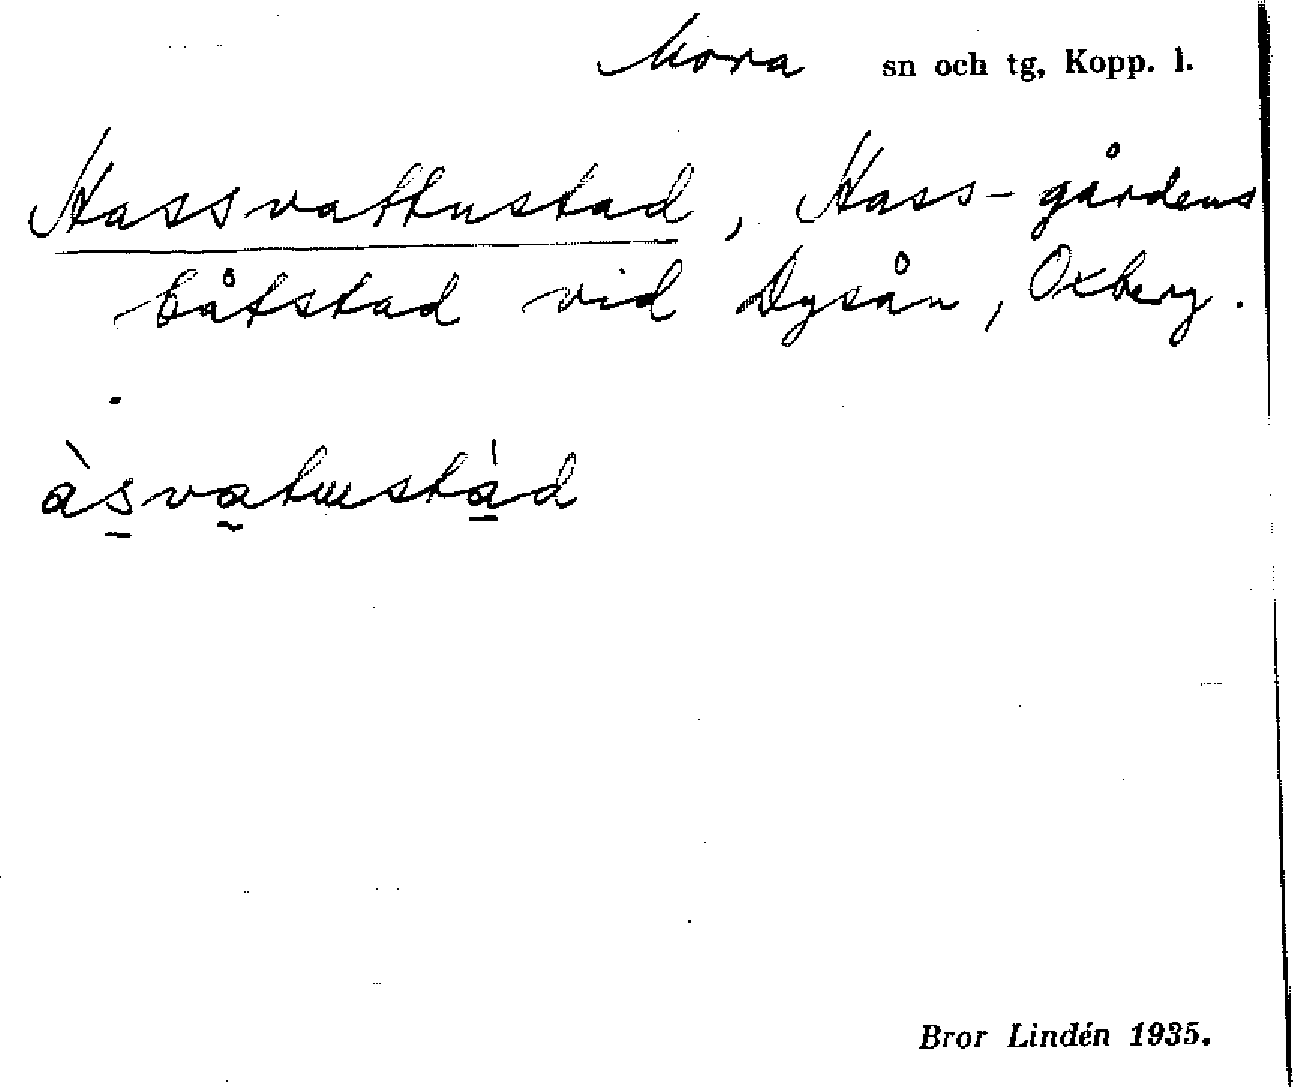 Mora sn och tg, Kopp. l.
Hassvattustad, Hass-gårdens
båtstad vid Dysån, Oxberg.
àsvatustád
Bror Lindén 1935.